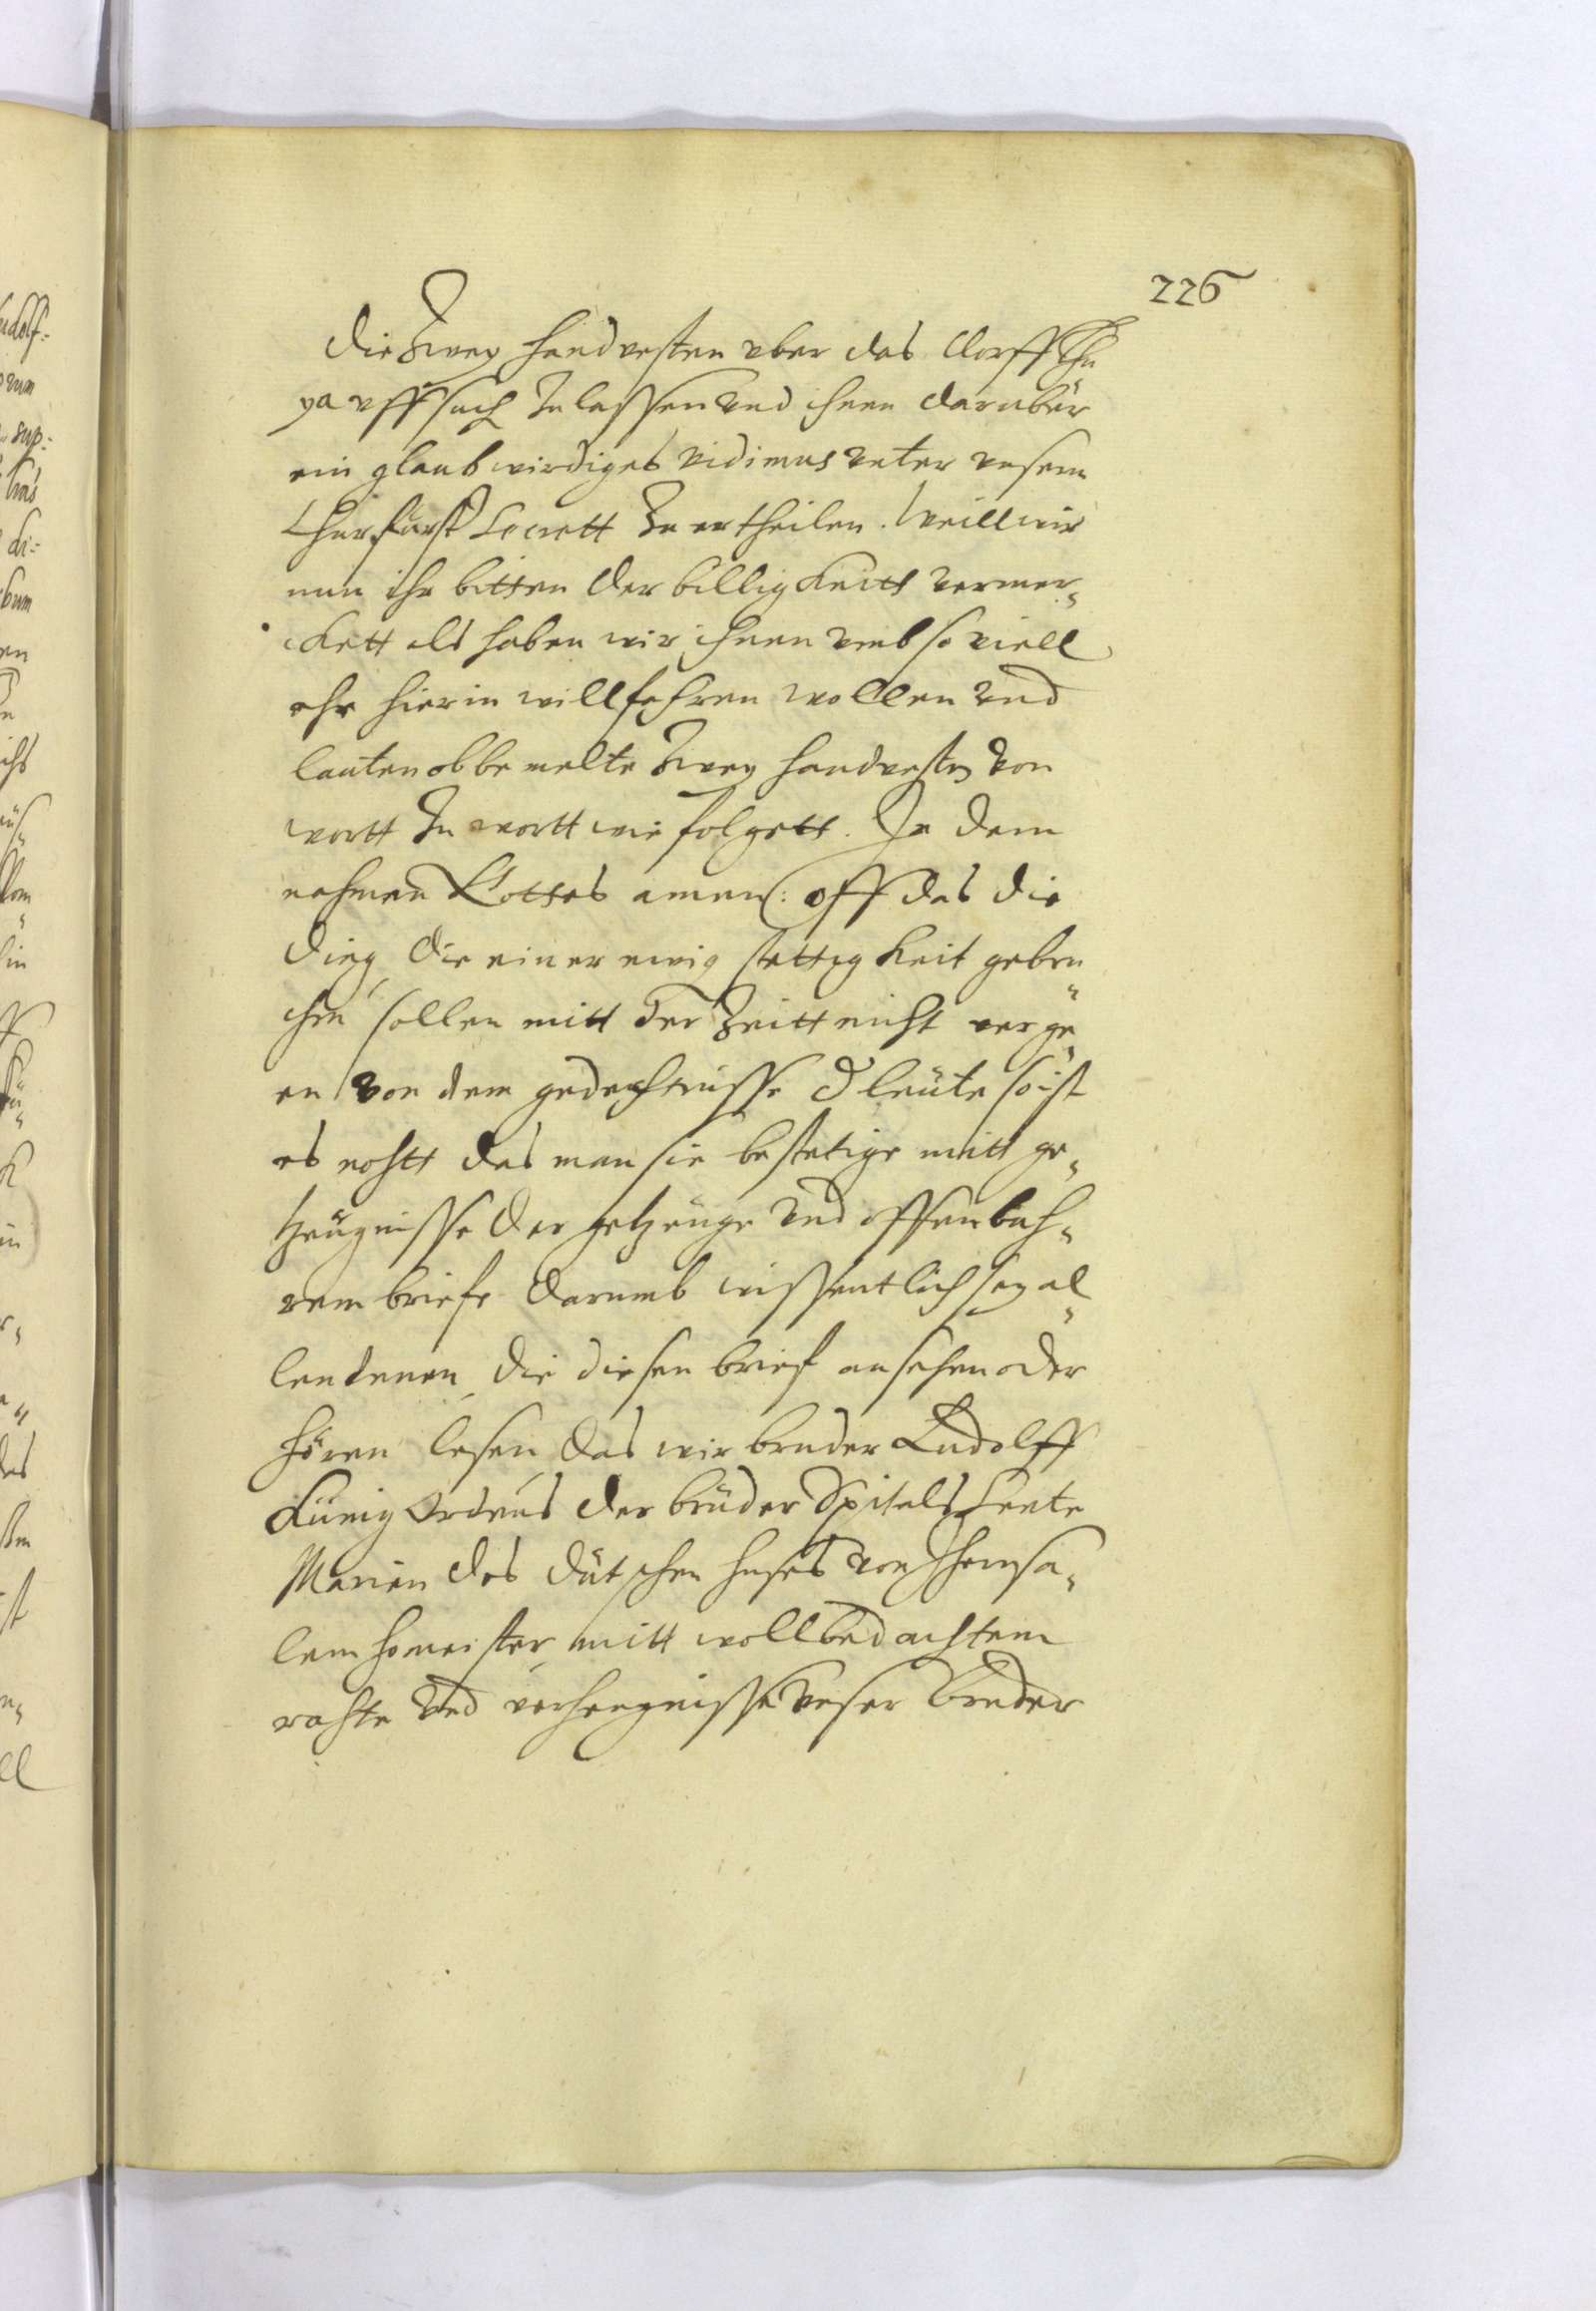 226
die Zwey handvesten vber das dorff
auffsuch Zulassen vnd ihnen darüber
ein glaubwirdiges vidimus vnter vnserm
Churfürst Secrett Zu ertheilen. Weill wir
nun ihr bitten der billigkeitt vermer„
ckett als haben wir ihnen vmb so viell
ehr hierin willfahren wollen vnd
lauten obbemelte Zwey handvesten von
wortt Zu wortt wie folgett. In dem
nahmen Gottes amen: Off das die
ding die einer ewig stettygkeit gebru„
chen sollen mitt der Zeitt nicht verge„
en von dem gedechtnisse d leüte so ist
es nohtt das man sie bestetige mitt ge„
tzeügnisse der getzeüge vnd offenbah„
rem briefe darumb wissentlich sey al„
len denen die diesen brief ansehen oder
hören lesen das wir bruder Ludolff
Künig Ordens der brüder Spitals Sente
Marien des Dütschen huses von Iherusa„
lem homeister mitt wollbedachtem
rahte vnd verhengnisse vnser Bruder